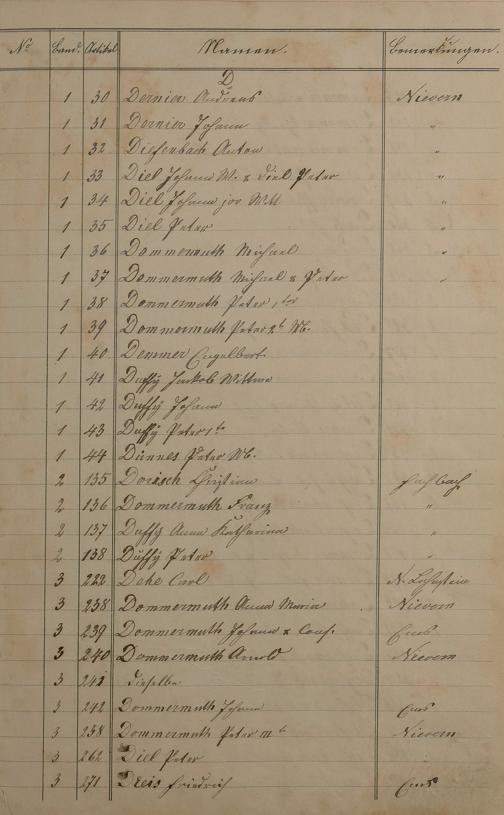 No Band. Artikel Namen. Bemerkungen.
D
1 30 Dernier Andreas Nievern
1 31 Dernier Johann "
1 32 Diefenbach Anton "
1 33 Diel Johann W. & Diel Peter "
1 34 Diel Johann jor Wtt "
1 35 Diel Peter "
1 36 Dommermuth Michael "
1 37 Dommermuth Michael & Peter "
1 38 Dommermuth Peter 1ter
1 39 Dommermuth Peter 2t Wb.
1 40 Demmer Engelbert
1 41 Duffÿ Jakob Wittwe
1 42 Duffÿ Johann
1 43 Duffÿ Peter 1te
1 44 Dünnes Peter Wb.
2 135 Christian Fachbach
2 136 Dommermuth Franz "
2 137 Duffÿ Anna Katharina "
2 138 Düffÿ Peter "
3 222 Dehe Carl N. Lahnstein
3 238 Dommermuth Anna Maria Nievern
3 239 Dommermuth Johann & Cons. Ems
3 240 Dommermuth Arnold Nievern
3 241 dieselbe
3 242 Dommermuth Johann Ems
3 258 Dommermuth Peter Nievern
3 262 Diel Peter "
3 271 Dreis Friedrich Ems